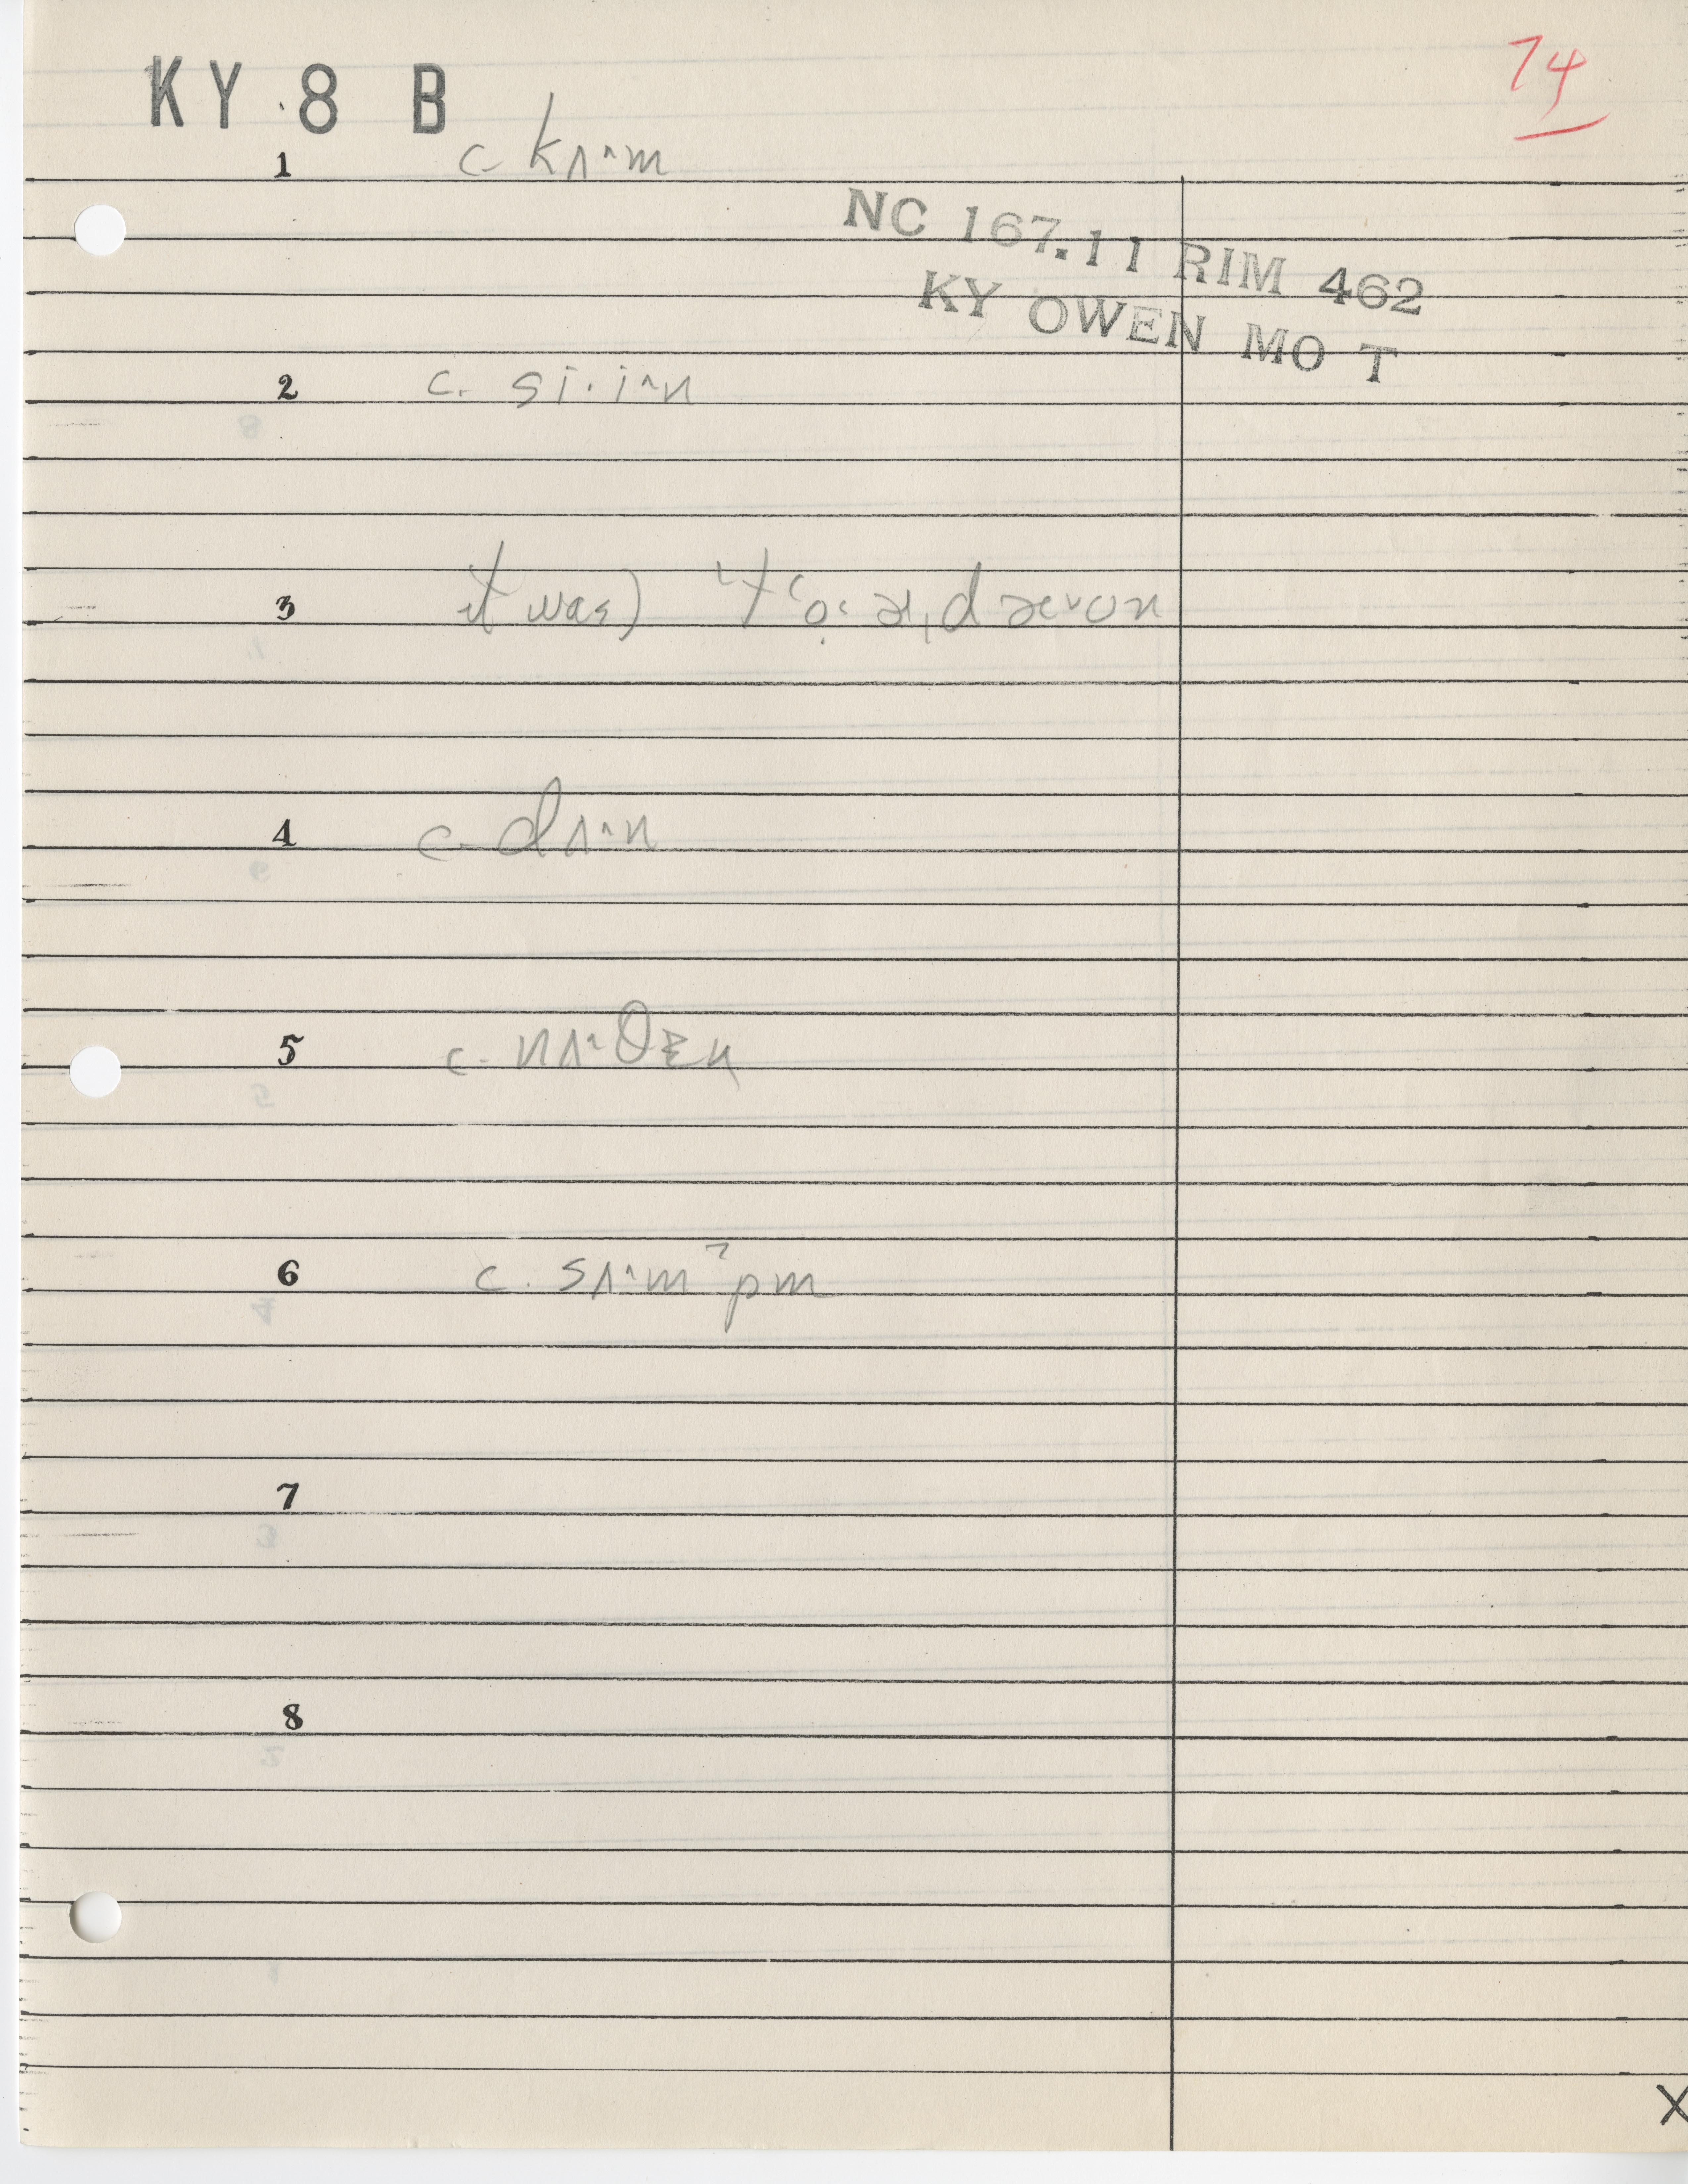 KY 8 B
74
1 c. kʌ·^m
NC 167.11 RIM 462
KY OWEN MO T
2 c. si·i^n
3 it was)
4 c. dʌ·^n
5 c.
6 c. sʌ·^mˀpm
7
8
X